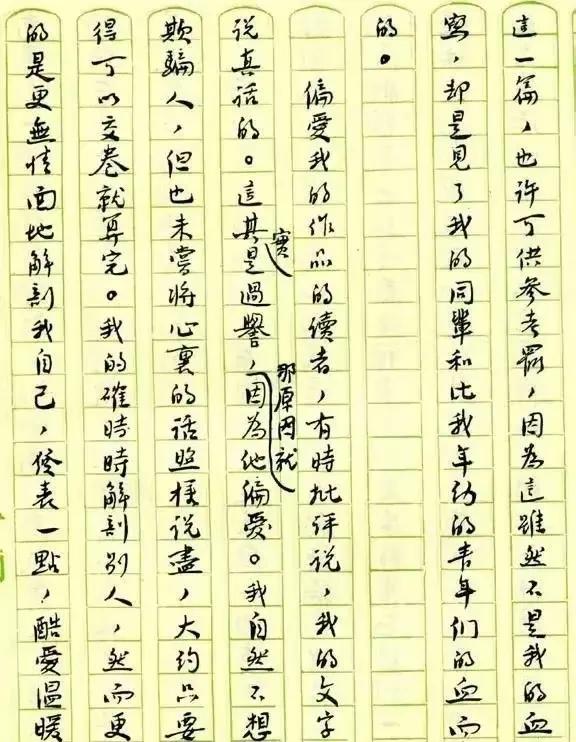 這一篇，也許可供參考罷，因為這雖然不是我的血
寫，却是見了我的同輩和比我年幼的青年們的血而
的。
偏愛我的作品的讀者，有時批評說，我的文字
说真話的。這其實是過譽，那原因就因為他偏愛。我自然不想
欺騙人，但也未嘗將心裏的話照樣說盡，大約只要
得可以交卷就算完。我的確時時解剖别人，然而更
的是更無情面地解剖我自己，發表一點，酷愛溫暖